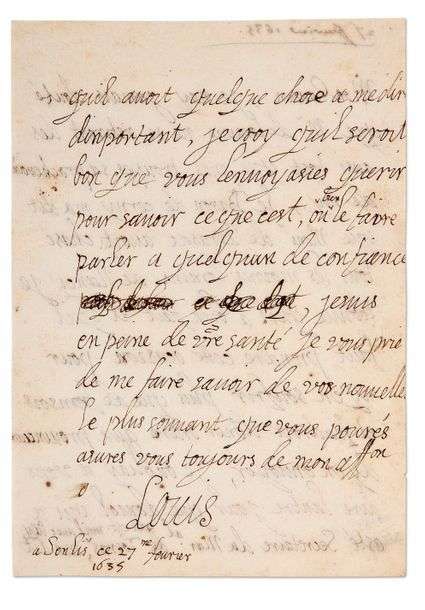 27 fevrier 1635.
quil avoit quelque chose a me dir
dinportant, je croy quil seroit
bon que vous lenvoyasies querir
pour savoir ce que cest, ou bien le faire
parler a quelquun de confiance
, je suis
en peine de vre santé je vous prie
de me faire savoir de vos nouvelles
le plus souvant que vous pourés
asures vous toujours de mon affon
Louis
a Senlis ce 27me fevrier
1635